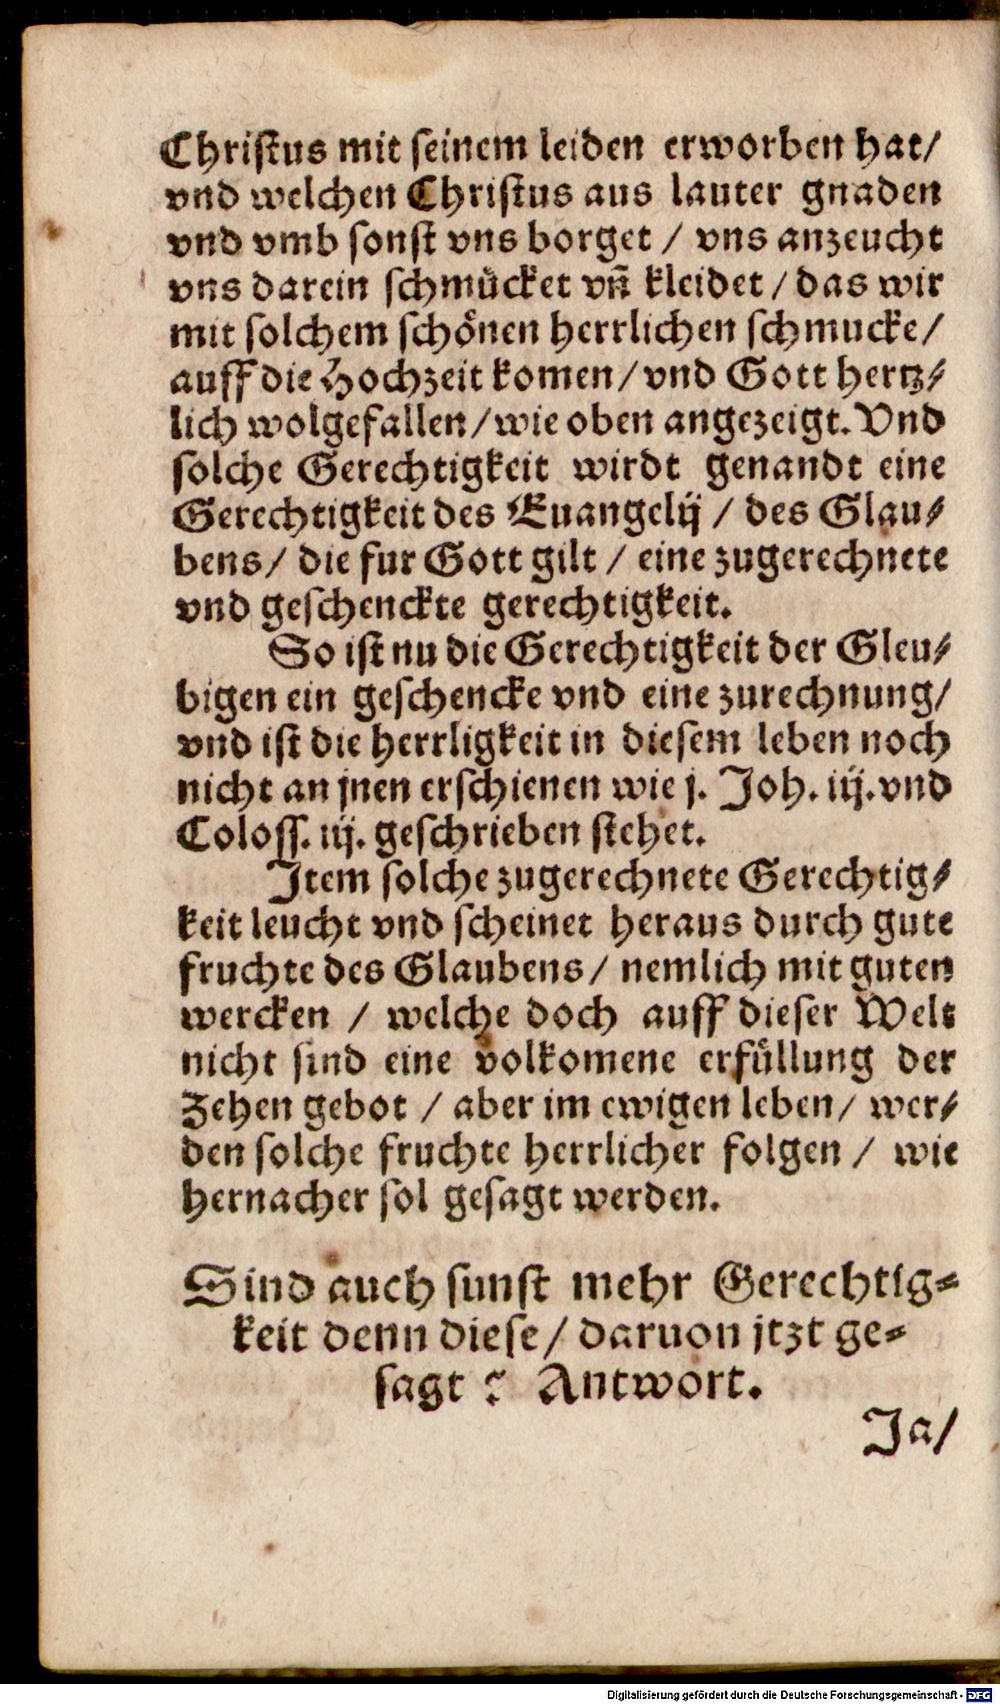 Christus mit seinem leiden erworben hat/
vnd welchen Christus aus lauter gnaden
vnd vmb sonst vns borget / vns anzeucht
vns darein schmücket vn̄ kleidet / das wir
mit solchem schönen herrlichen schmucke/
auff die Hochzeit komen/vnd Gott hertz⸗
lich wolgefallen/wie oben angezeigt. Vnd
solche Gerechtigkeit wirdt genandt eine
Gerechtigkeit des Euangelij / des Glau⸗
bens/ die fur Gott gilt / eine zugerechnete
vnd geschenckte gerechtigkeit.
So ist nu die Gerechtigkeit der Gleu⸗
bigen ein geschencke vnd eine zurechnung/
vnd ist die herrligkeit in diesem leben noch
nicht an jnen erschienen wie j. Joh. iij. vnd
Coloss. iij. geschrieben stehet.
Item solche zugerechnete Gerechtig⸗
keit leucht vnd scheinet heraus durch gute
fruchte des Glaubens/ nemlich mit guten
wercken / welche doch auff dieser Welt
nicht sind eine volkomene erfüllung der
Zehen gebot / aber im ewigen leben/ wer⸗
den solche fruchte herrlicher folgen / wie
hernacher sol gesagt werden.
Sind auch sunst mehr Gerechtig⸗
keit denn diese/ daruon jtzt ge⸗
sagt ? Antwort.
Ja/
Digitalisierung gefördert durch die Deutsche Forschungsgemeinschaft - DFG